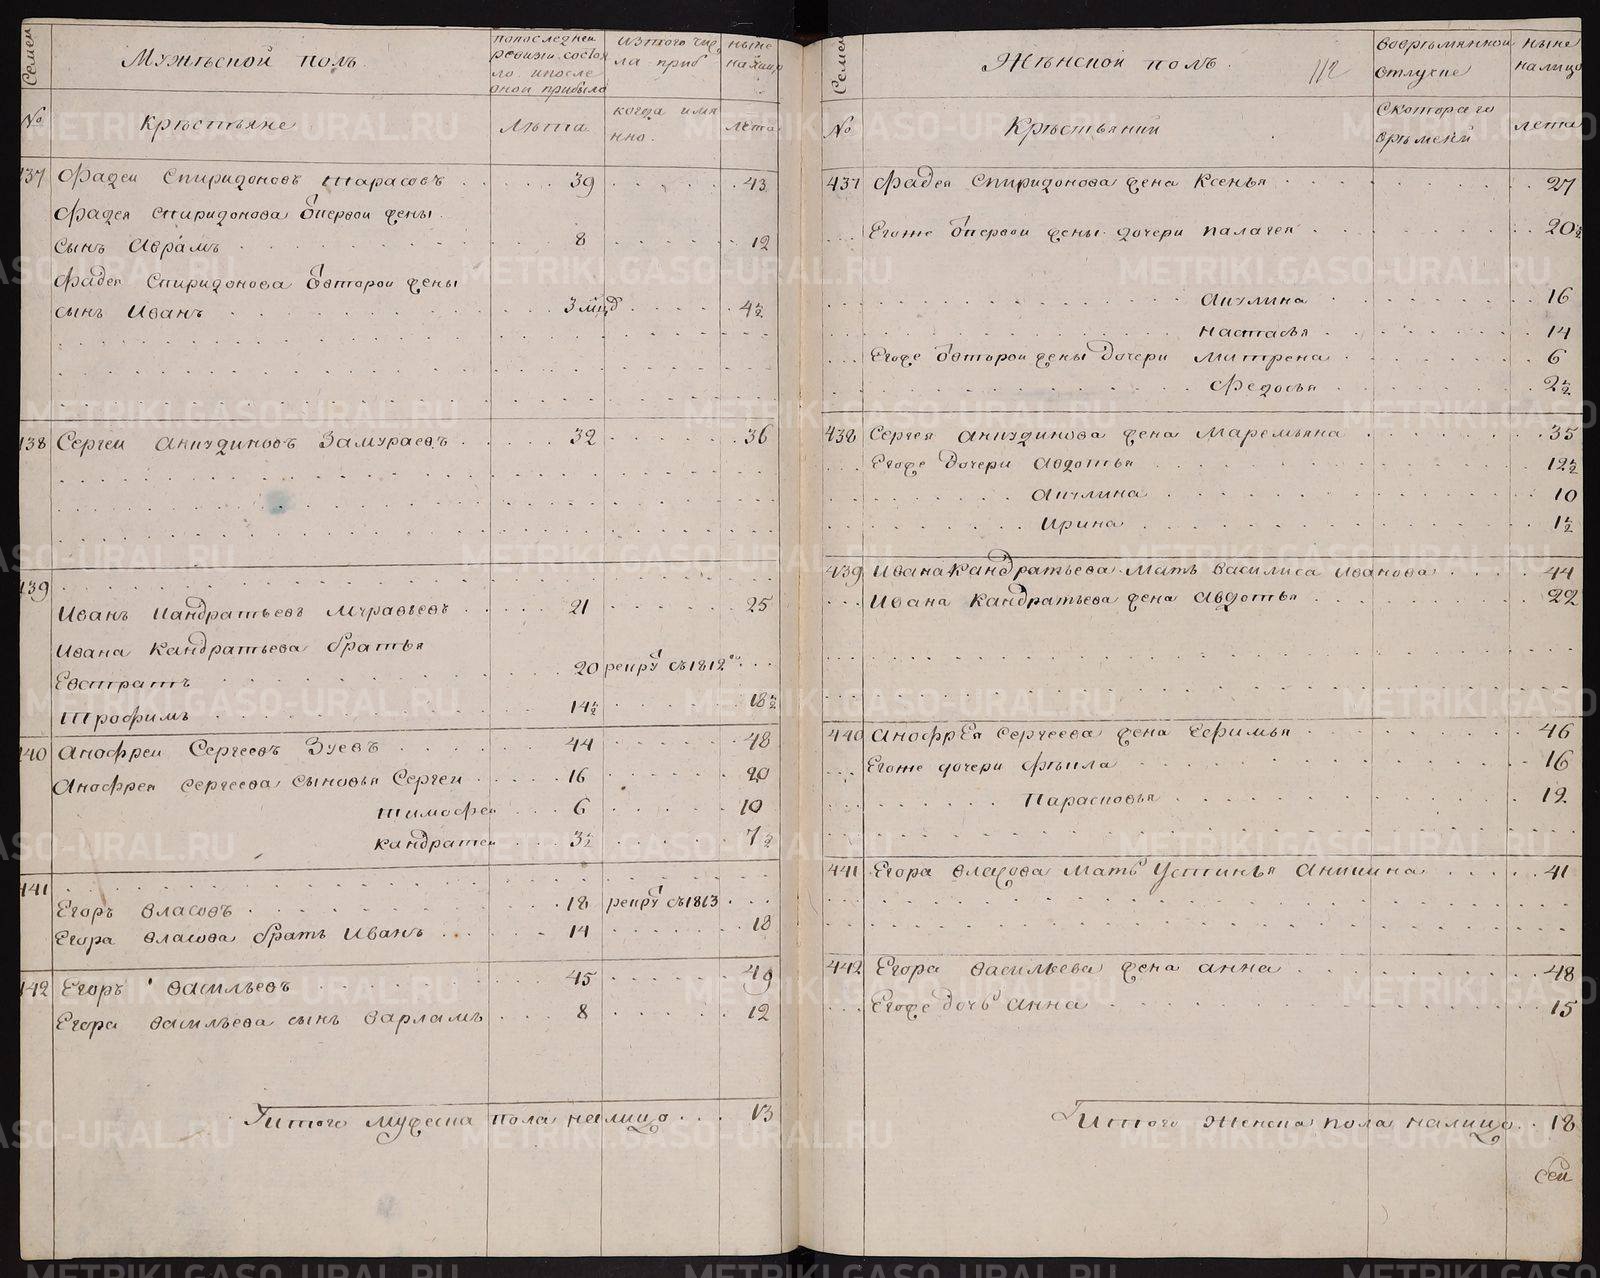 Семеи
Мужеской полъ.
попоследней ревизи состояло ипосле оной прибыло
изтого числа приб
ныне налицо
№
Крестьяне
Лѣта
когда имянно.
лета
437 Фадеи Спиридоновъ Тарасовъ 39 43
Фадея Спиридонова Впервои жены
сынъ Аврамъ 8 12
Фадея Спиридонова Овторои жены
сынъ Иванъ 3 мцд 4½
438 Сергеи Анкудиновъ Замураевъ 32 36
439
Иванъ Кандратьевъ Муравьевъ 21 25
Ивана Кандратьева братья
Евстратъ 20 рекру съ1812го
Трофимъ 14½ 18½
440 Анофреи Сергеевъ Зуевъ 44 48
Анофрея Сергеева сыновья Сергеи 16 20
Тимофеи 6 10
Кандратеи 3½ 7½
441
Егоръ Власовъ 18 рекру съ1813
Егора Власова братъ Иванъ 14 18
442 Егоръ Васильевъ 45 49
Егора Васильева сынъ Варламъ 8 12
Итого мужеска пола налицо 13
Семеи
Женской полъ.
112
вовременной отлучке
ныне налицо
№
Крестьяний
Скотораго времени
лета
437 Фадея Спиридонова жена Ксенья 27
Егоже Впервои жены дочери Палагея 20½
Акулина 16
Настасья 14
Егоже Овторои жены дочери Митрена 6
Федосья 2½
438 Сергея Анкудинова жена Маремьяна 35
Егоже дочери Авдотья 12½
Акулина 10
Ирина 1½
439 Ивана Кандратьева Мать Василиса Иванова 44
Ивана Кандратьева жена Авдотья 22
440 Анофрея Сергеева жена Ефимья 46
Егоже дочери Фекла 16
Парасковья 12
441 Егора Власова Мать Устинья Аникина 41
442 Егора Васильева жена Анна 48
Егоже дочь Анна 15
Итого Женска пола налицо 18
METRIKI.GASO-URAL.RU